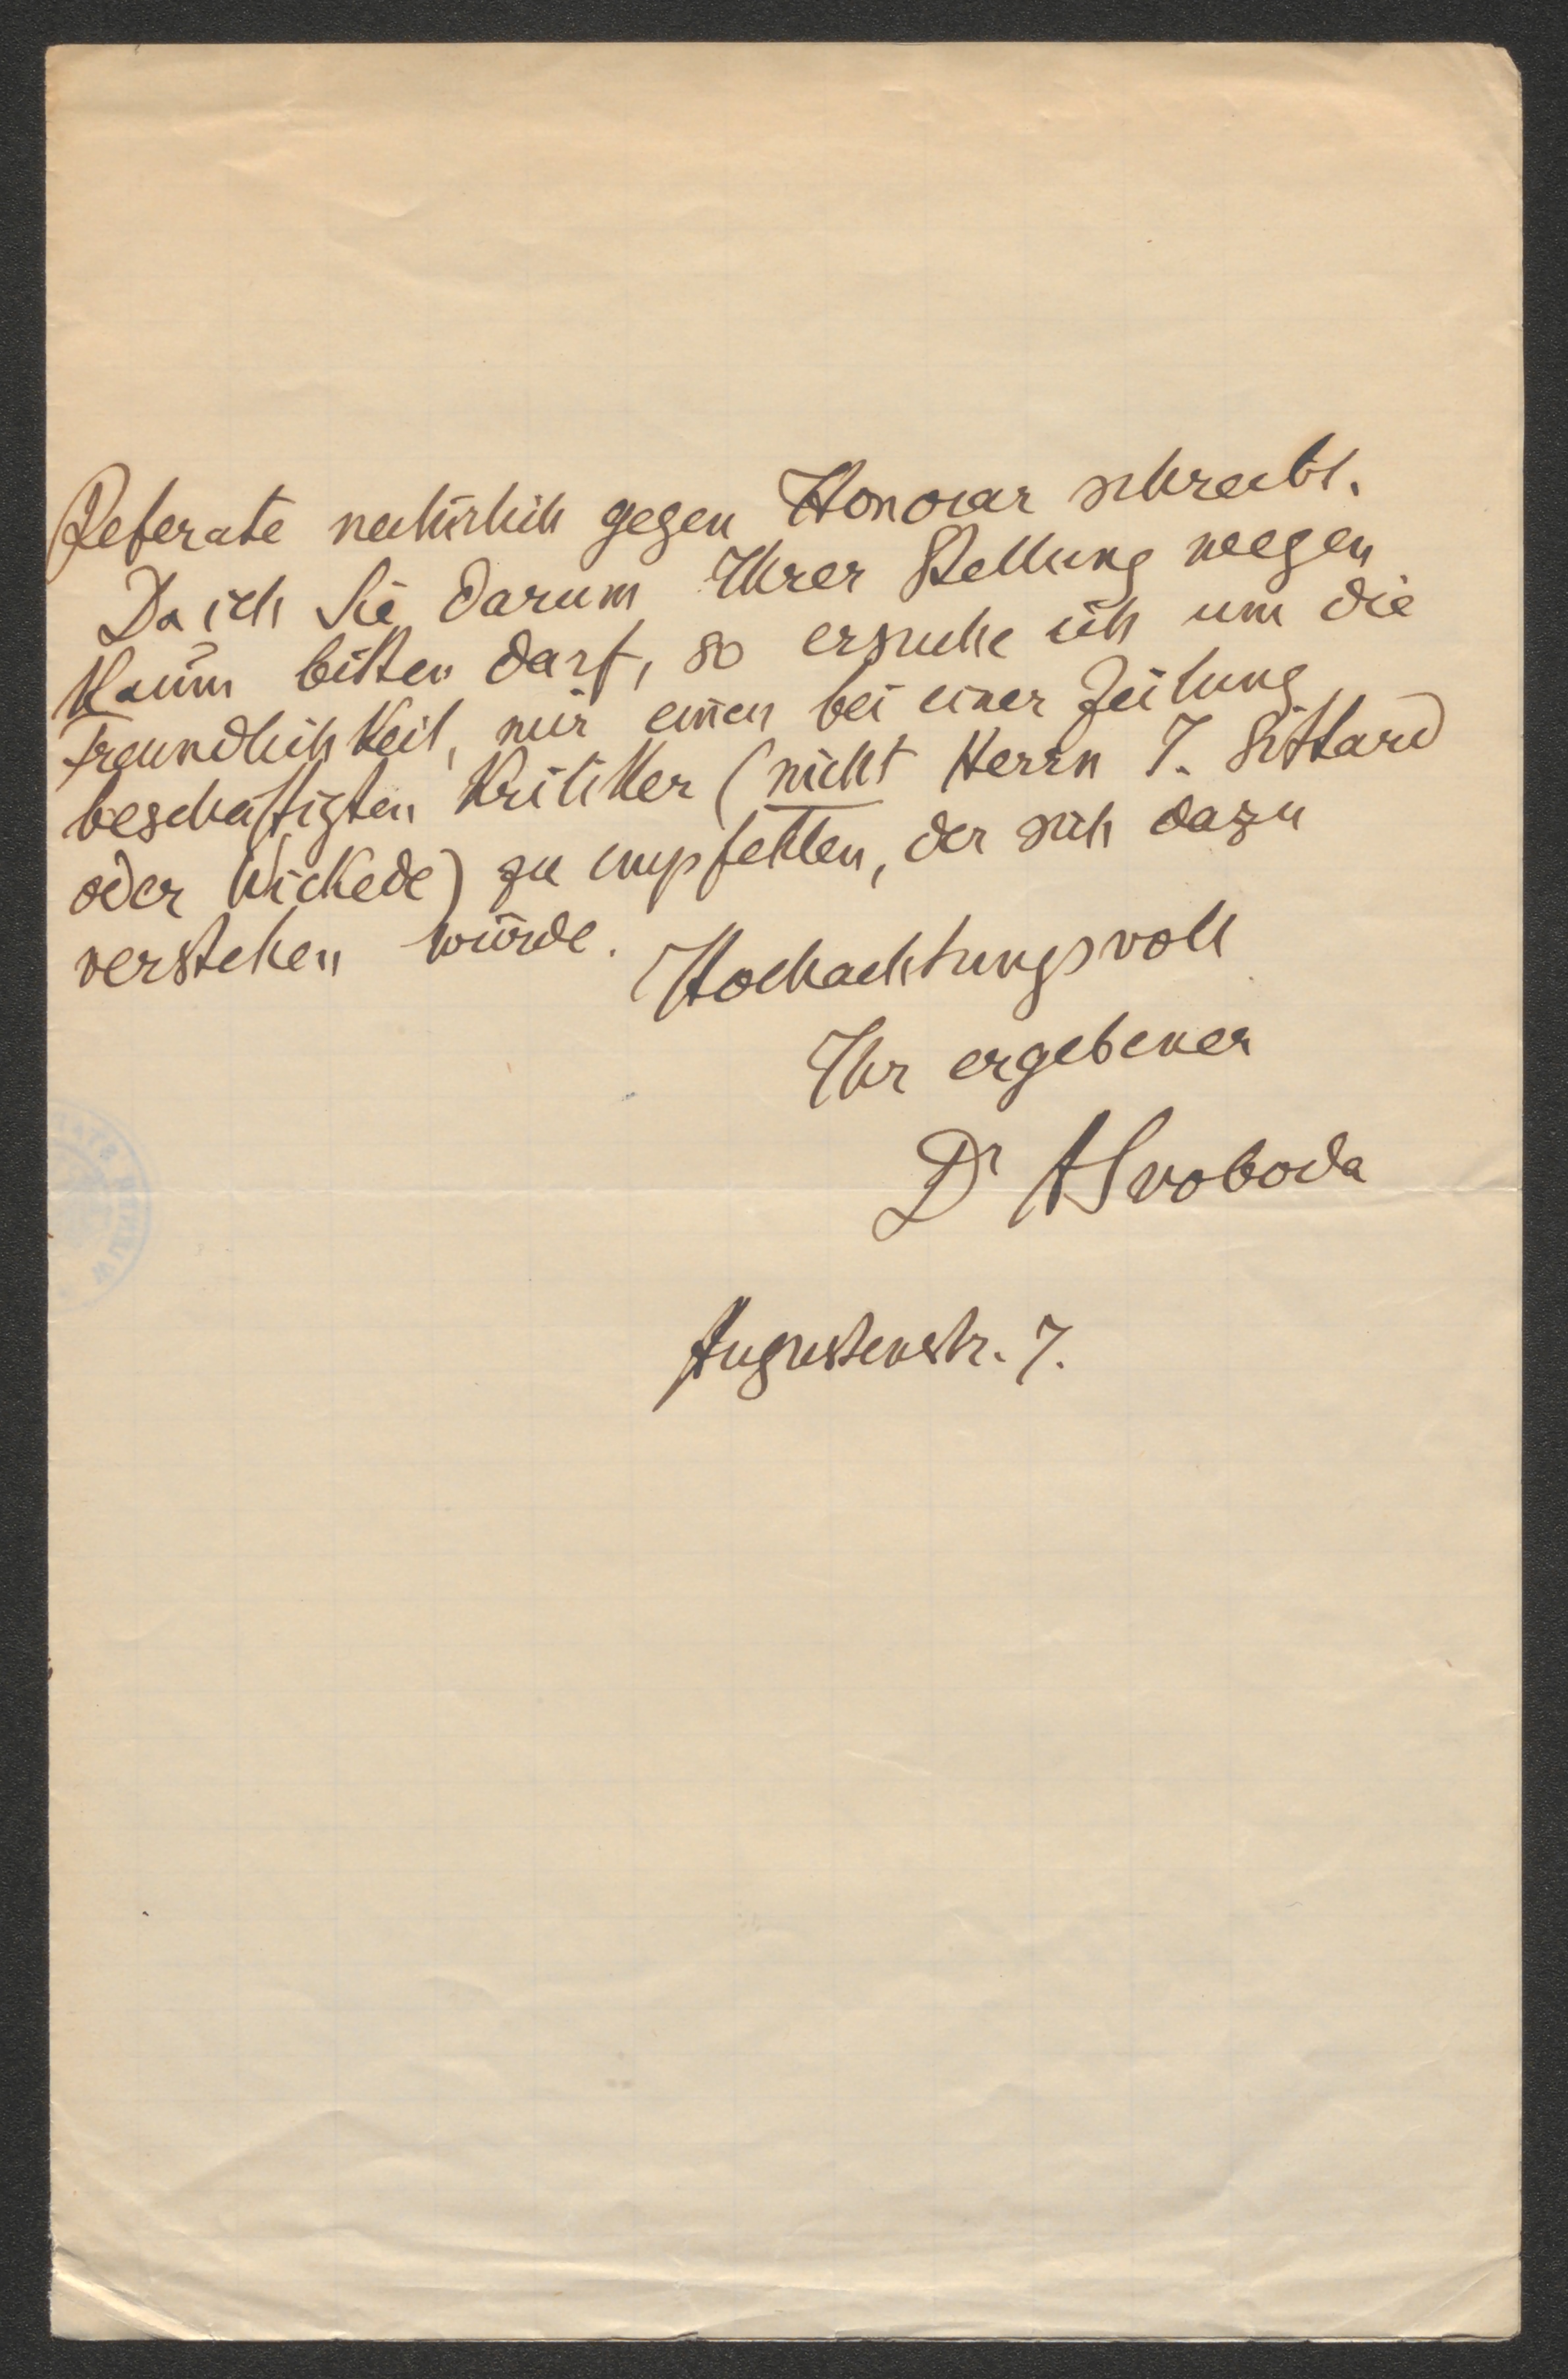 Referate natürlich gegen Honorar schreibt.
Da ich Sie darum Ihrer Stellung wegen
kaum bitten darf, so ersuche ich um die
Freundlichkeit, mir einen bei einer Zeitung
beschäftigten Kritiker (nicht Herrn J. Sittard
oder Wickede) zu empfehlen, der sich dazu
verstehen würde.
Hochachtungsvoll
Ihr ergebener
Dr ASvoboda
Augustenstr. 7.